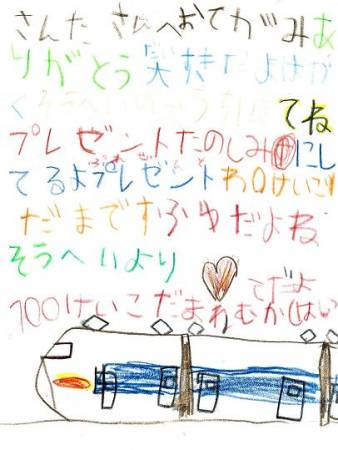 さんたさんへおてがみあ
りがとう実すきだよはが
くそうへいの てね
プレゼントたのしみにし
てるよプレゼントわ0けいこ
だまですふゆだよね
そうへいより
てだよ
100けいこだまれむかはい